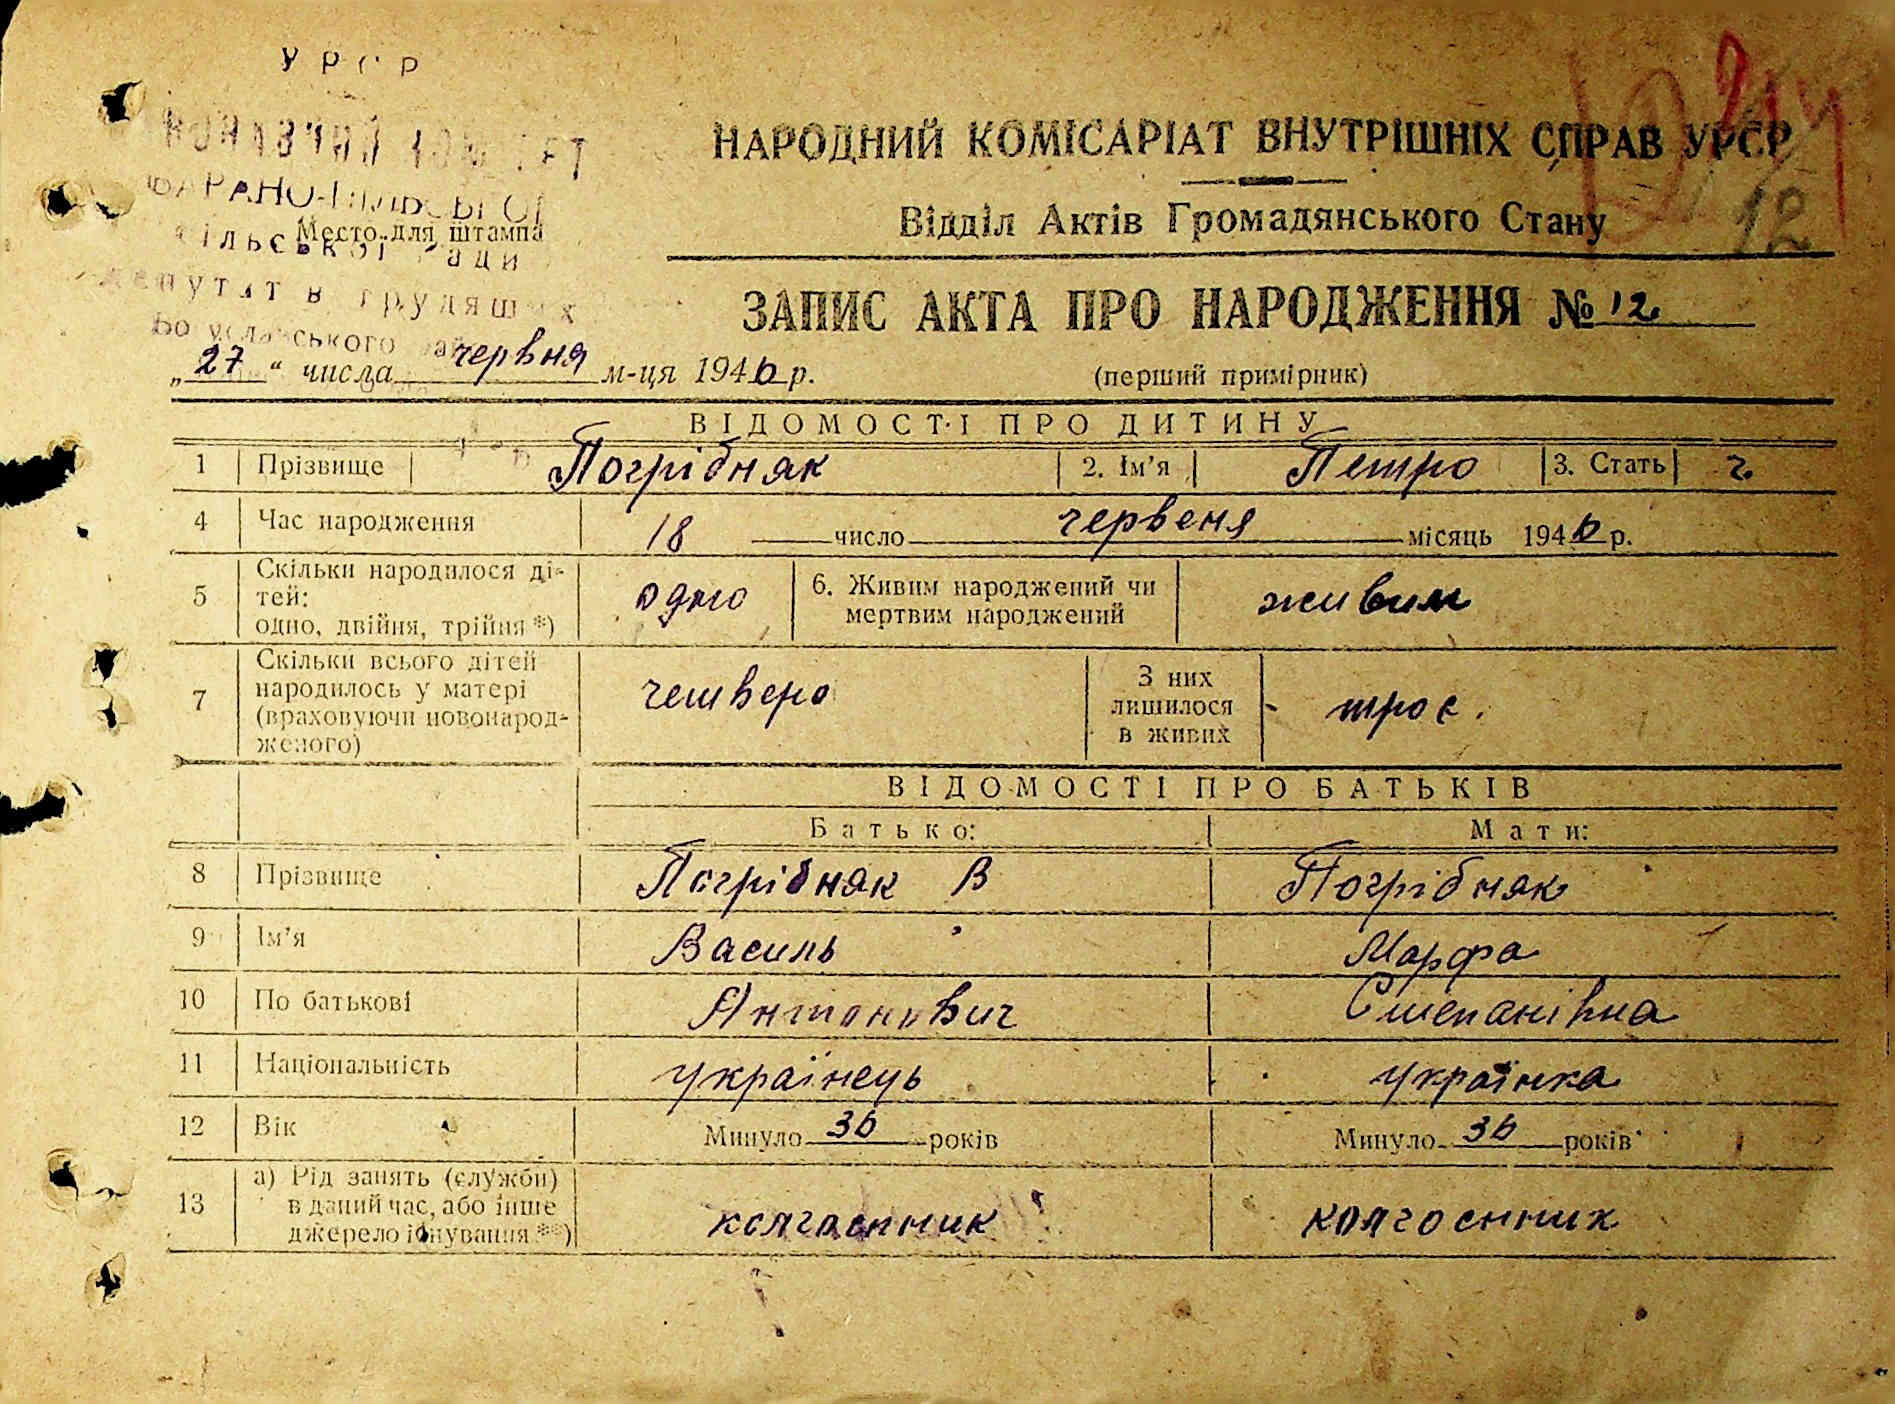 УРСР
НАРОДНИЙ КОМІСАРІАТ ВНУТРІШНІХ СПРАВ УРСР
Відділ Актів Громадянського Стану
12
Место для штампа
сільської ради
депутатів трудящих
Богуславського
ЗАПИС АКТА ПРО НАРОДЖЕННЯ № 12
„27“ числа червня м-ця 1946 р.
(перший примірник)
ВІДОМОСТІ ПРО ДИТИНУ
1 Прізвище Погрібняк 2. Ім'я Петро 3. Стать ч.
4 Час народження 18 число червеня місяць 1946 р.
5 Скільки народилося ді-
тей:
одно, двійня, трійня *) одно 6. Живим народжений чи
мертвим народжений живим
7 Скільки всього дітей
народилось у матері
(враховуючи новонарод-
женого) четверо З них
лишилося
в живих троє.
ВІДОМОСТІ ПРО БАТЬКІВ
Батько: Мати:
8 Прізвище Погрібняк В Погрібняк
9 Ім'я Василь Марфа
10 По батькові Антонович Степанівна
11 Національність українець українка
12 Вік Минуло 36 років Минуло 36 років
13 а) Рід занять (служби)
в даний час, або інше
джерело існування **) колгоспник колгоспник